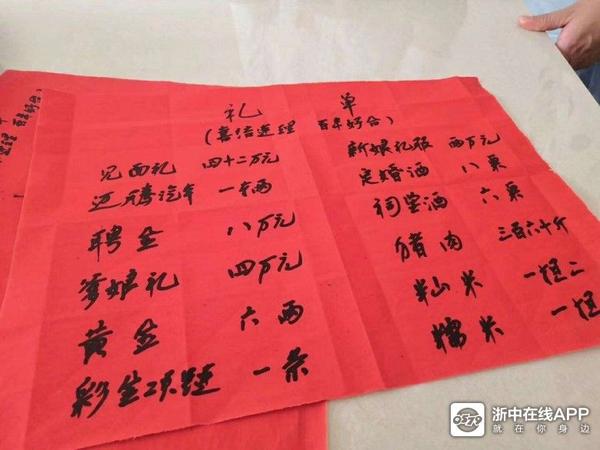 礼 单
(喜结連理 百年好合)
见面礼 四十二万元
迈腾汽车 一辆
聘金 八万元
爹娘礼 四万元
黄金 六两
彩金项链 一条
新娘礼服 两万元
定婚酒 八桌
祠堂酒 六桌
猪肉 三百六十斤
籼米 一担二
糯米 一担
理 百年好合)
浙中在线APP
就在你身边